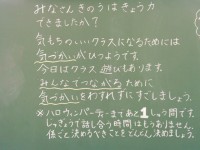 みなさんきのうはきょう力
できましたか？
気もちのいいクラスになるためには
気づかいがひつようです。
今日はクラス遊びもあります。
みんなでつながるために
気づかいをわすれずにすごしましょう。
※ハロウィンパーティーまであと1しゅう間です。
しっきょうで話し合う時間はもうありません。
係ごと決めるべきことをどんどん決めましょう。